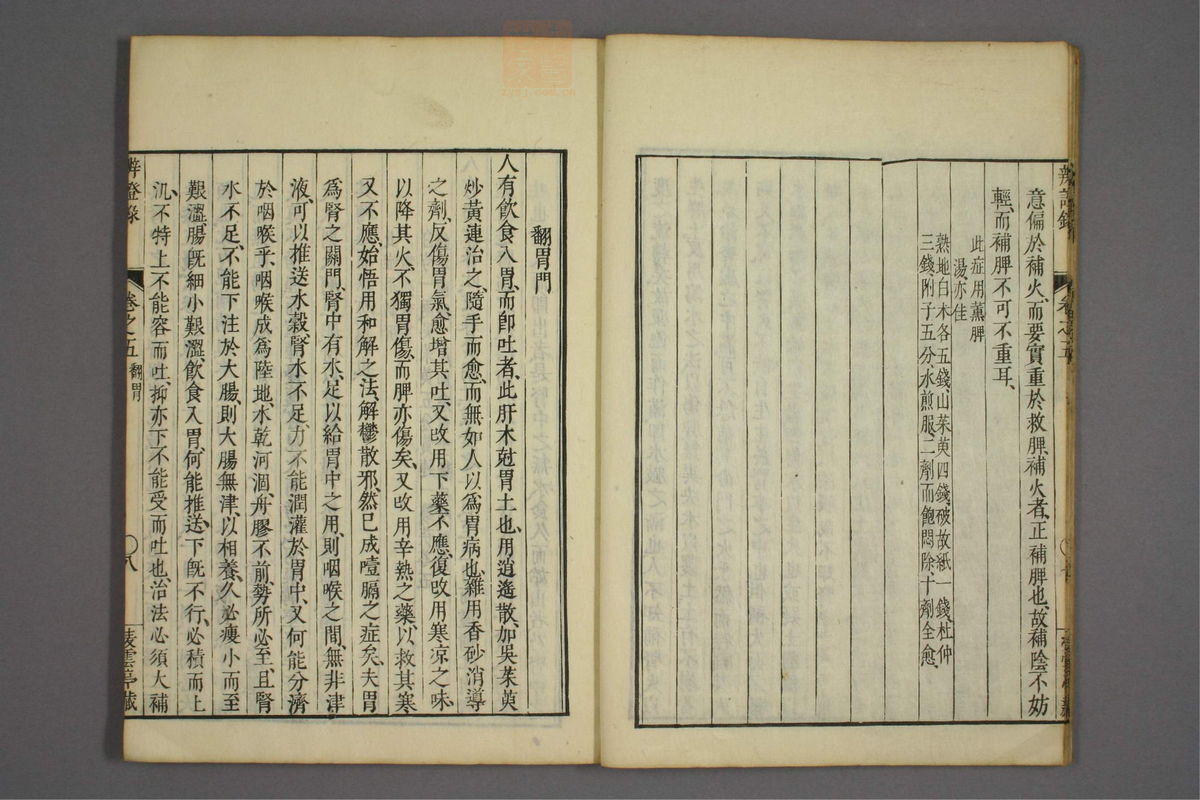 意偏於補火、而要實重於救脾、補火者、正補脾也、故補陰不妨
輕、而補脾不可不重耳、
此症用薰脾
湯亦佳
熟地白朮各五錢山茱萸四錢、破故紙一錢、杜仲
三錢、附子五分、水煎服、二劑而飽悶除十劑全愈、
翻胃門
人有飲食入胃、而卽吐者、此肝木尅胃土也、用逍遙散、加吳茱萸
炒黃連治之、隨手而愈、而無如人以爲胃病也、雜用香砂消導
之劑、反傷胃氣、愈增其吐、又改用下藥不應、復改用寒凉之味、
以降其火、不獨胃傷、而脾亦傷矣、又改用辛熱之藥、以救其寒、
又不應、始悟用和解之法、解鬱散邪、然已成噎膈之症矣、夫胃
爲腎之關門、腎中有水、足以給胃中之用、則咽喉之間、無非津
液、可以推送水穀、腎水不足、力不能潤灌於胃中、又何能分濟
於咽喉乎、咽喉成爲陸地、水乾河涸、舟膠不前、勢所必至、且腎
水不足、不能下注於大腸、則大腸無津、以相養、久必瘦小而至
艱澀、腸旣細小艱澀、飲食入胃、何能推送、下旣不行、必積而上
汎、不特上不能容而吐、抑亦下不能受而吐也、治法必須大補
辨證錄
卷之五 翻胃
八